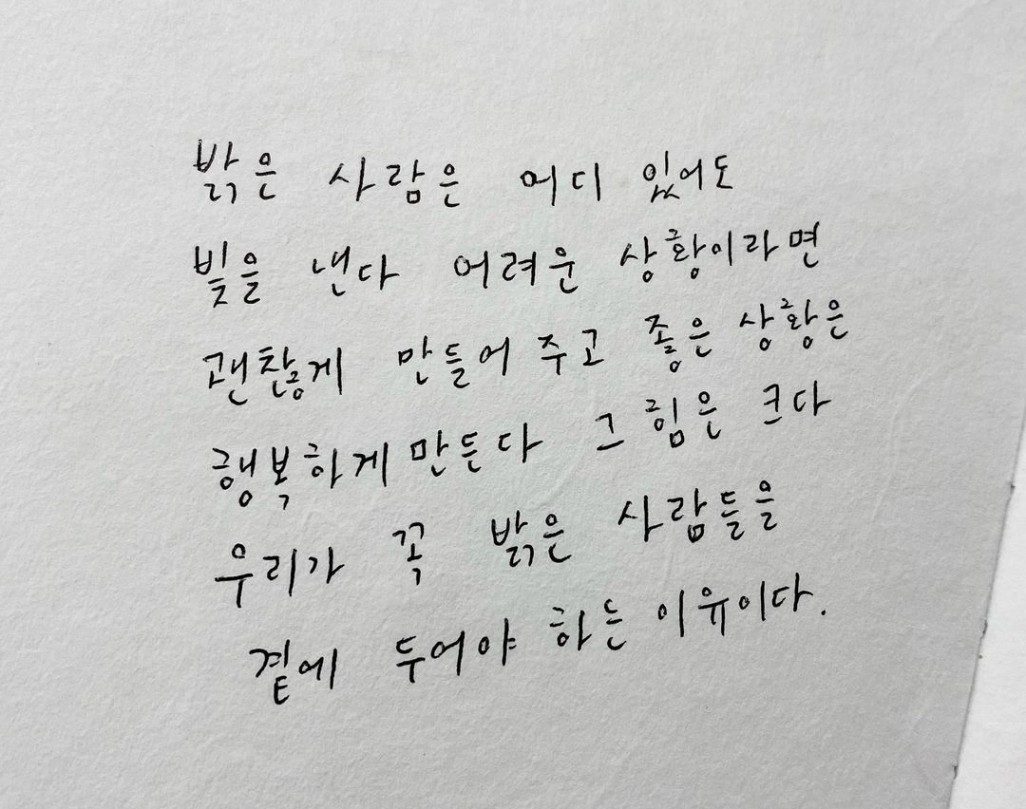 밝은 사람은 어디 있어도
빛을 낸다 어려운 상황이라면
괜찮게 만들어 주고 좋은 상황은
행복하게 만든다 그 힘은 크다
우리가 꼭 밝은 사람들을
곁에 두어야 하는 이유이다.